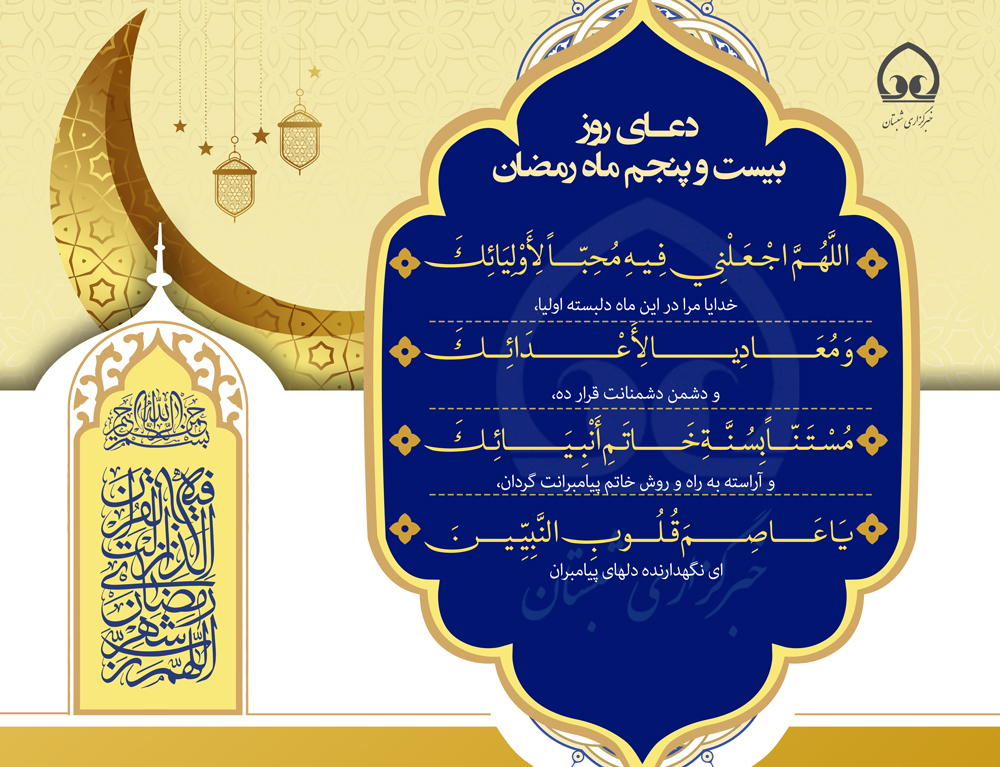 خبرگزاری شبستان
دعای روز
بیست و پنجم ماه رمضان
اللَّهُمَّ اجْعَلْنِي فِيهِ مُحِبّاً لِأَوْلِيَائِكَ
خدایا مرا در این ماه دلبسته اولیا،
وَ مُعَادِياً لِأَعْدَائِكَ
و دشمن دشمنانت قرار ده،
مُسْتَنّاً بِسُنَّةِ خَاتَمِ أَنْبِيَائِكَ
و آراسته به راه و روش خاتم پیامبرانت گردان،
يَا عَاصِمَ قُلُوبِ النَّبِيِّينَ
ای نگهدارنده دلهای پیامبران
خبرگزاری شبستان
بسم الله الرحمن الرحیم
اللهم رب شهر رمضان الذی انزلت فیه القرآن